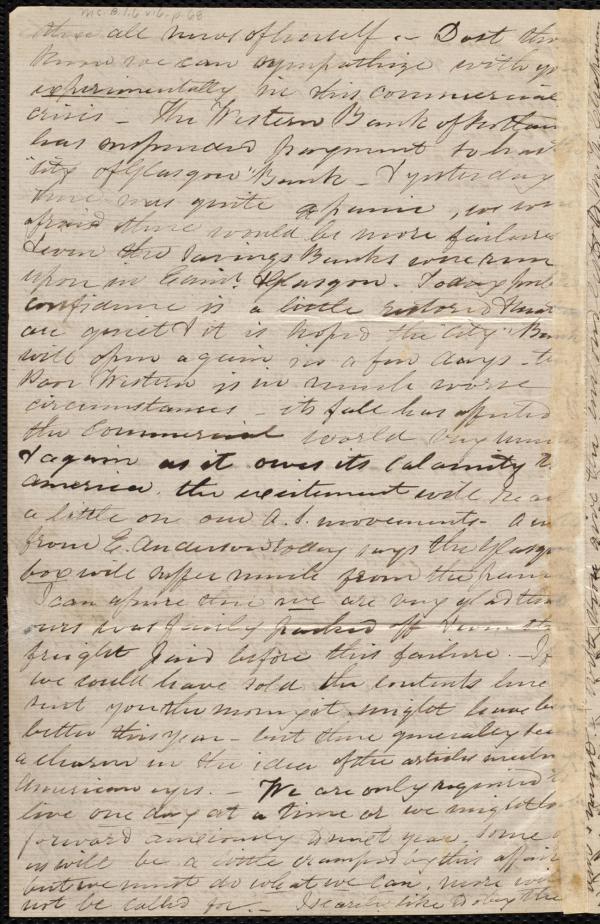 thee all news of herself. - Dost thou
know we can sympathize with yo
experimentally in this commercial
crisis - The Western Bank of Scotlan
has suspended payment so has
"City of Glasgow" Bank - & yesterday
there was quite a panic, we were
afraid there would be more failures
& even the Savings Banks were run
upon in Edinr. & Glasgow. Today
confidence is a little restored &
are quiet & it is hoped the "City" Bank
will open again in a few days - the
Poor Western is in much worse
circumstances - its fall has affected
the Commercial world very much
& again as it owes its calamity to
America, the excitement will
a little on our A.S. movements - A
from E. Anderson today says the Glasgow
box will suffer much from the panic
I can assure thee we are very glad that
ours was fairly packed off & even the
freight paid before this failure. - If
we could have sold the contents here
sent you the money it might have been
better this year - but there generally
a charm in the idea of the articles
American eyes. - We are only required to
live one day at a time or we might look
forward anxiously to next year, some of
us will be a little cramped by this affair
but we must do what we can, more will
not be called for. - I scarcely like to